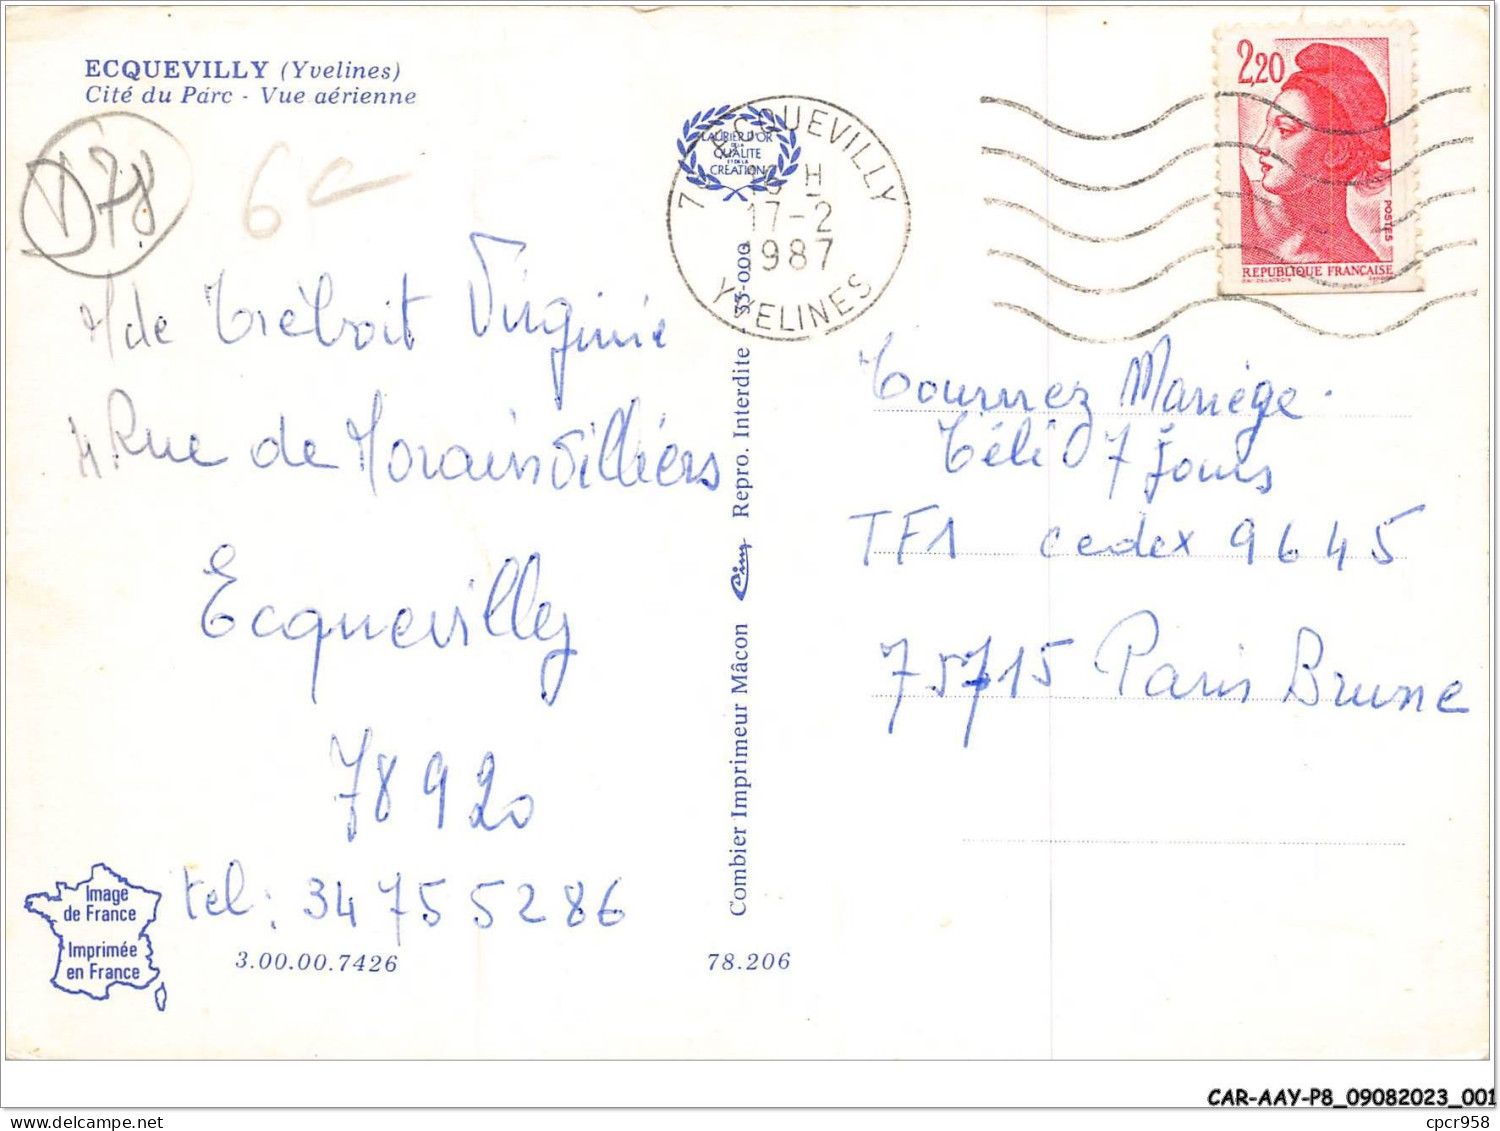 ECQUEVILLY (Yvelines)
Cité du Parc - Vue aérienne
D78
6€
LAURIER D'OR
DE LA
QUALITÉ
ET DE LA
CRÉATION
78 ECQUEVILLY
H
17-2
1987
YVELINES
2,20
POSTES
REPUBLIQUE FRANÇAISE
Mde Tréboit Virginie
4 Rue de Morainvilliers
Ecquevilly
78920
tel: 34 75 52 86
Tournez Manège.
Télé 7 Jours
TF1 cedex 9645
75715 Paris Brune
Combier Imprimeur Mâcon Cim Repro. Interdite 33-000
Image
de France
Imprimée
en France
3.00.00.7426
78.206
CAR-AAY-P8_09082023_001
cpcr958